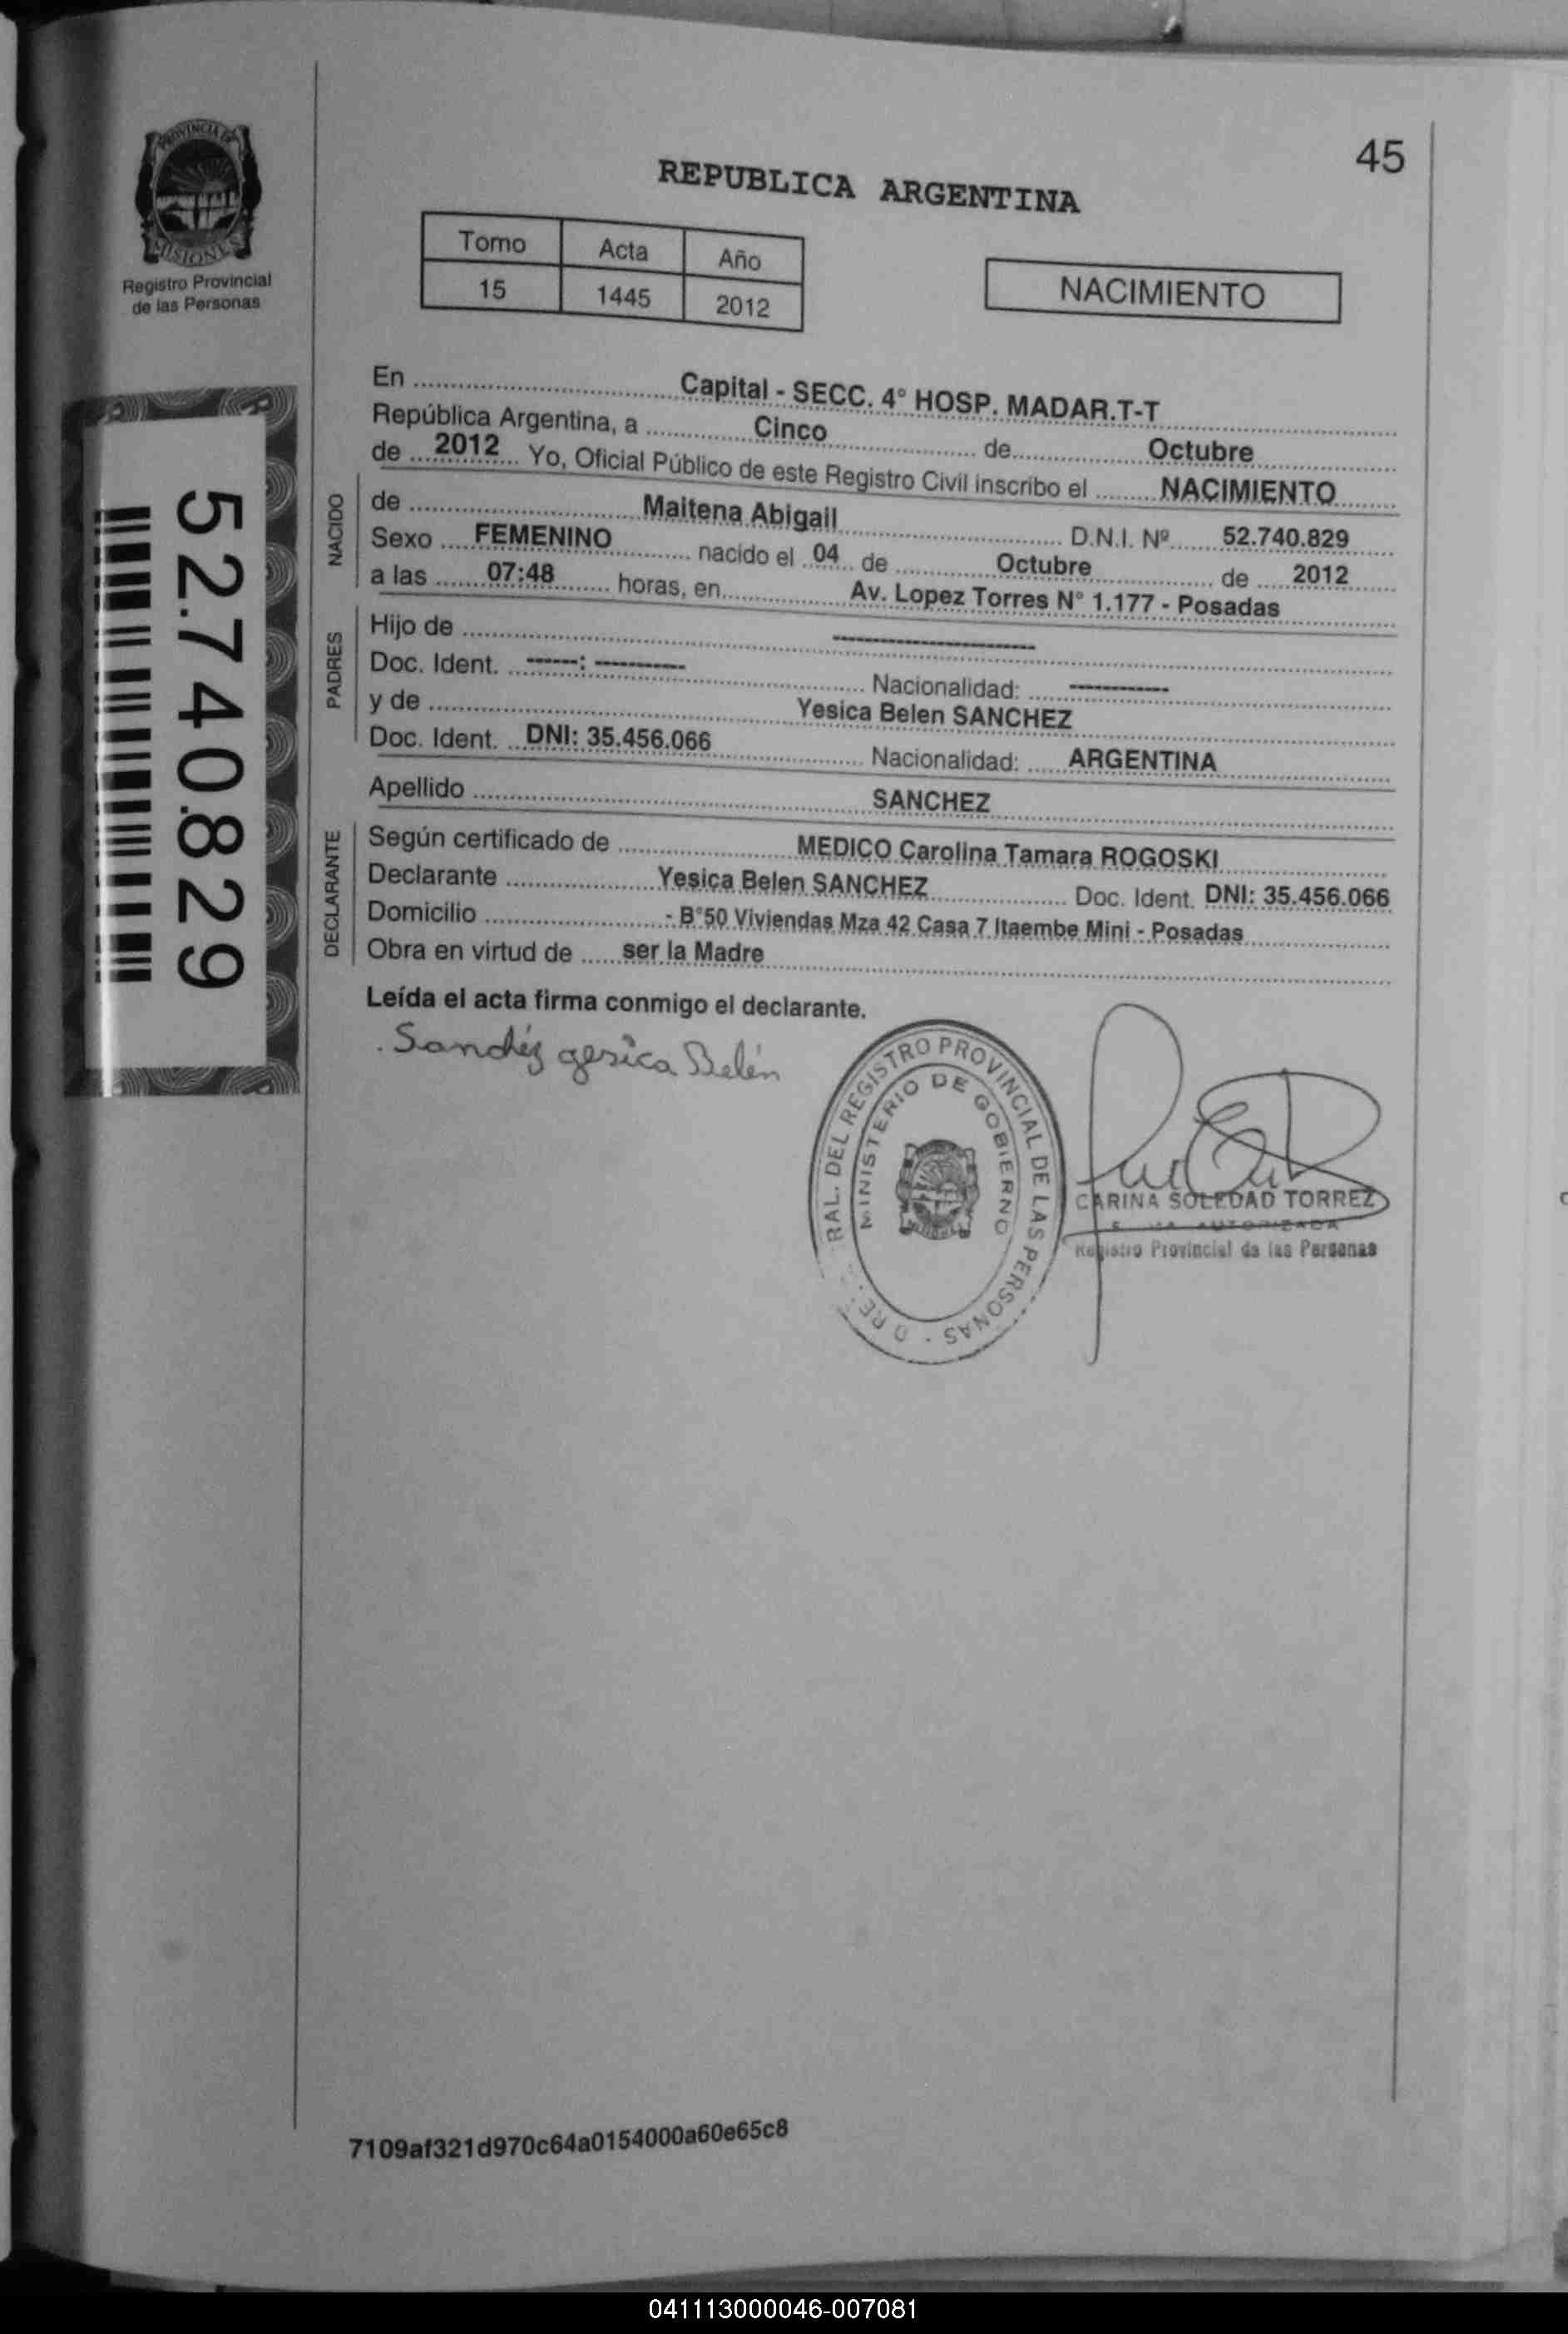 45
PROVINCIA DE
MISIONES
Registro Provincial
de las Personas
REPUBLICA ARGENTINA
Tomo Acta Año
15 1445 2012
NACIMIENTO
52.740.829
En ........ Capital - SECC. 4° HOSP. MADAR.T-T
República Argentina, a ........ Cinco ........ de ........ Octubre
de ... 2012 ... Yo, Oficial Público de este Registro Civil inscribo el ........ NACIMIENTO
NACIDO
de ........ Maitena Abigail ........ D.N.I. Nº ...... 52.740.829
Sexo .... FEMENINO ........ nacido el .. 04 .. de ........ Octubre ........ de .... 2012
a las ...... 07:48 ...... horas, en ........ Av. Lopez Torres N° 1.177 - Posadas
PADRES
Hijo de ........ --------------------
Doc. Ident. .. ------: ---------- ........ Nacionalidad: ..... -----------
y de ........ Yesica Belen SANCHEZ
Doc. Ident. .. DNI: 35.456.066 ........ Nacionalidad: ..... ARGENTINA
Apellido ........ SANCHEZ
DECLARANTE
Según certificado de ........ MEDICO Carolina Tamara ROGOSKI
Declarante ........ Yesica Belen SANCHEZ ........ Doc. Ident. DNI: 35.456.066
Domicilio ........ - B°50 Viviendas Mza 42 Casa 7 Itaembe Mini - Posadas
Obra en virtud de ..... ser la Madre
Leída el acta firma conmigo el declarante.
Sanchéz yesica Belén
RAL. DEL REGISTRO PROVINCIAL DE LAS PERSONAS -
MINISTERIO DE GOBIERNO
CARINA SOLEDAD TORREZ
AUTORIZADA
Registro Provincial de las Personas
7109af321d970c64a0154000a60e65c8
041113000046-007081